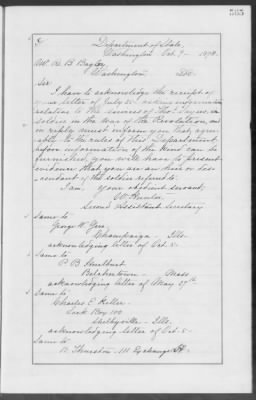 Department of State,
Washington Oct. 7 - 1878.
W. B. Bagley,
Washington D.C.
Sir
I have to acknowledge the receipt of
your letter of July 25 asking information
relative to the services of Thos.
soldier in the War of the Revolution, and
in reply must inform you that agree-
ably to the rules of this Department
before information of the kind can be
furnished you will have to present
evidence that you are an heir or des-
cendant of the soldier referred to.
I am, Your obedient servant,
W. Hunter,
Second Assistant Secretary
Same to
George W. Gere
Champaign - Ills.
acknowledging letter of Oct. 5.
Same to
P. B. Hurlburt
Belchertown - Mass
acknowledging letter of May 27th
Same to
Charles E. Keller
Lock Box 100
Shelbyville - Ills.
acknowledging letter of Oct. 5 -
Same to
B. Thurston - 111 Exchange St.